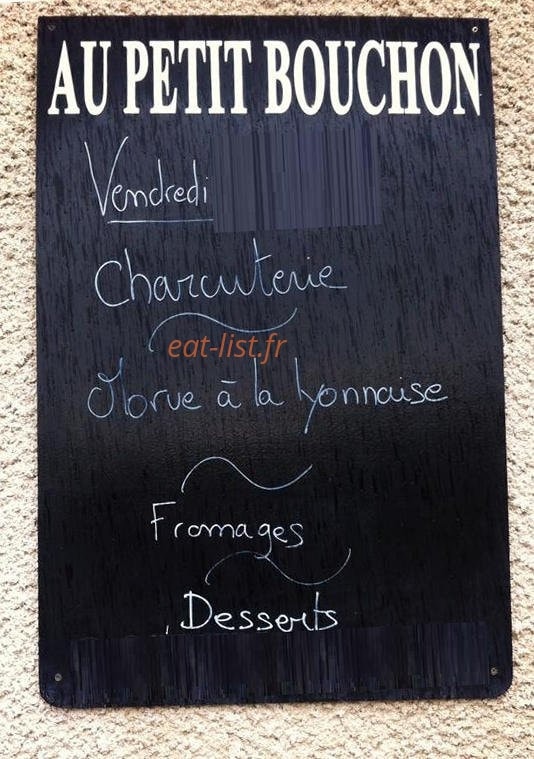 AU PETIT BOUCHON
Vendredi
Charcuterie
eat-list.fr
Morue à la Lyonnaise
Fromages
Desserts